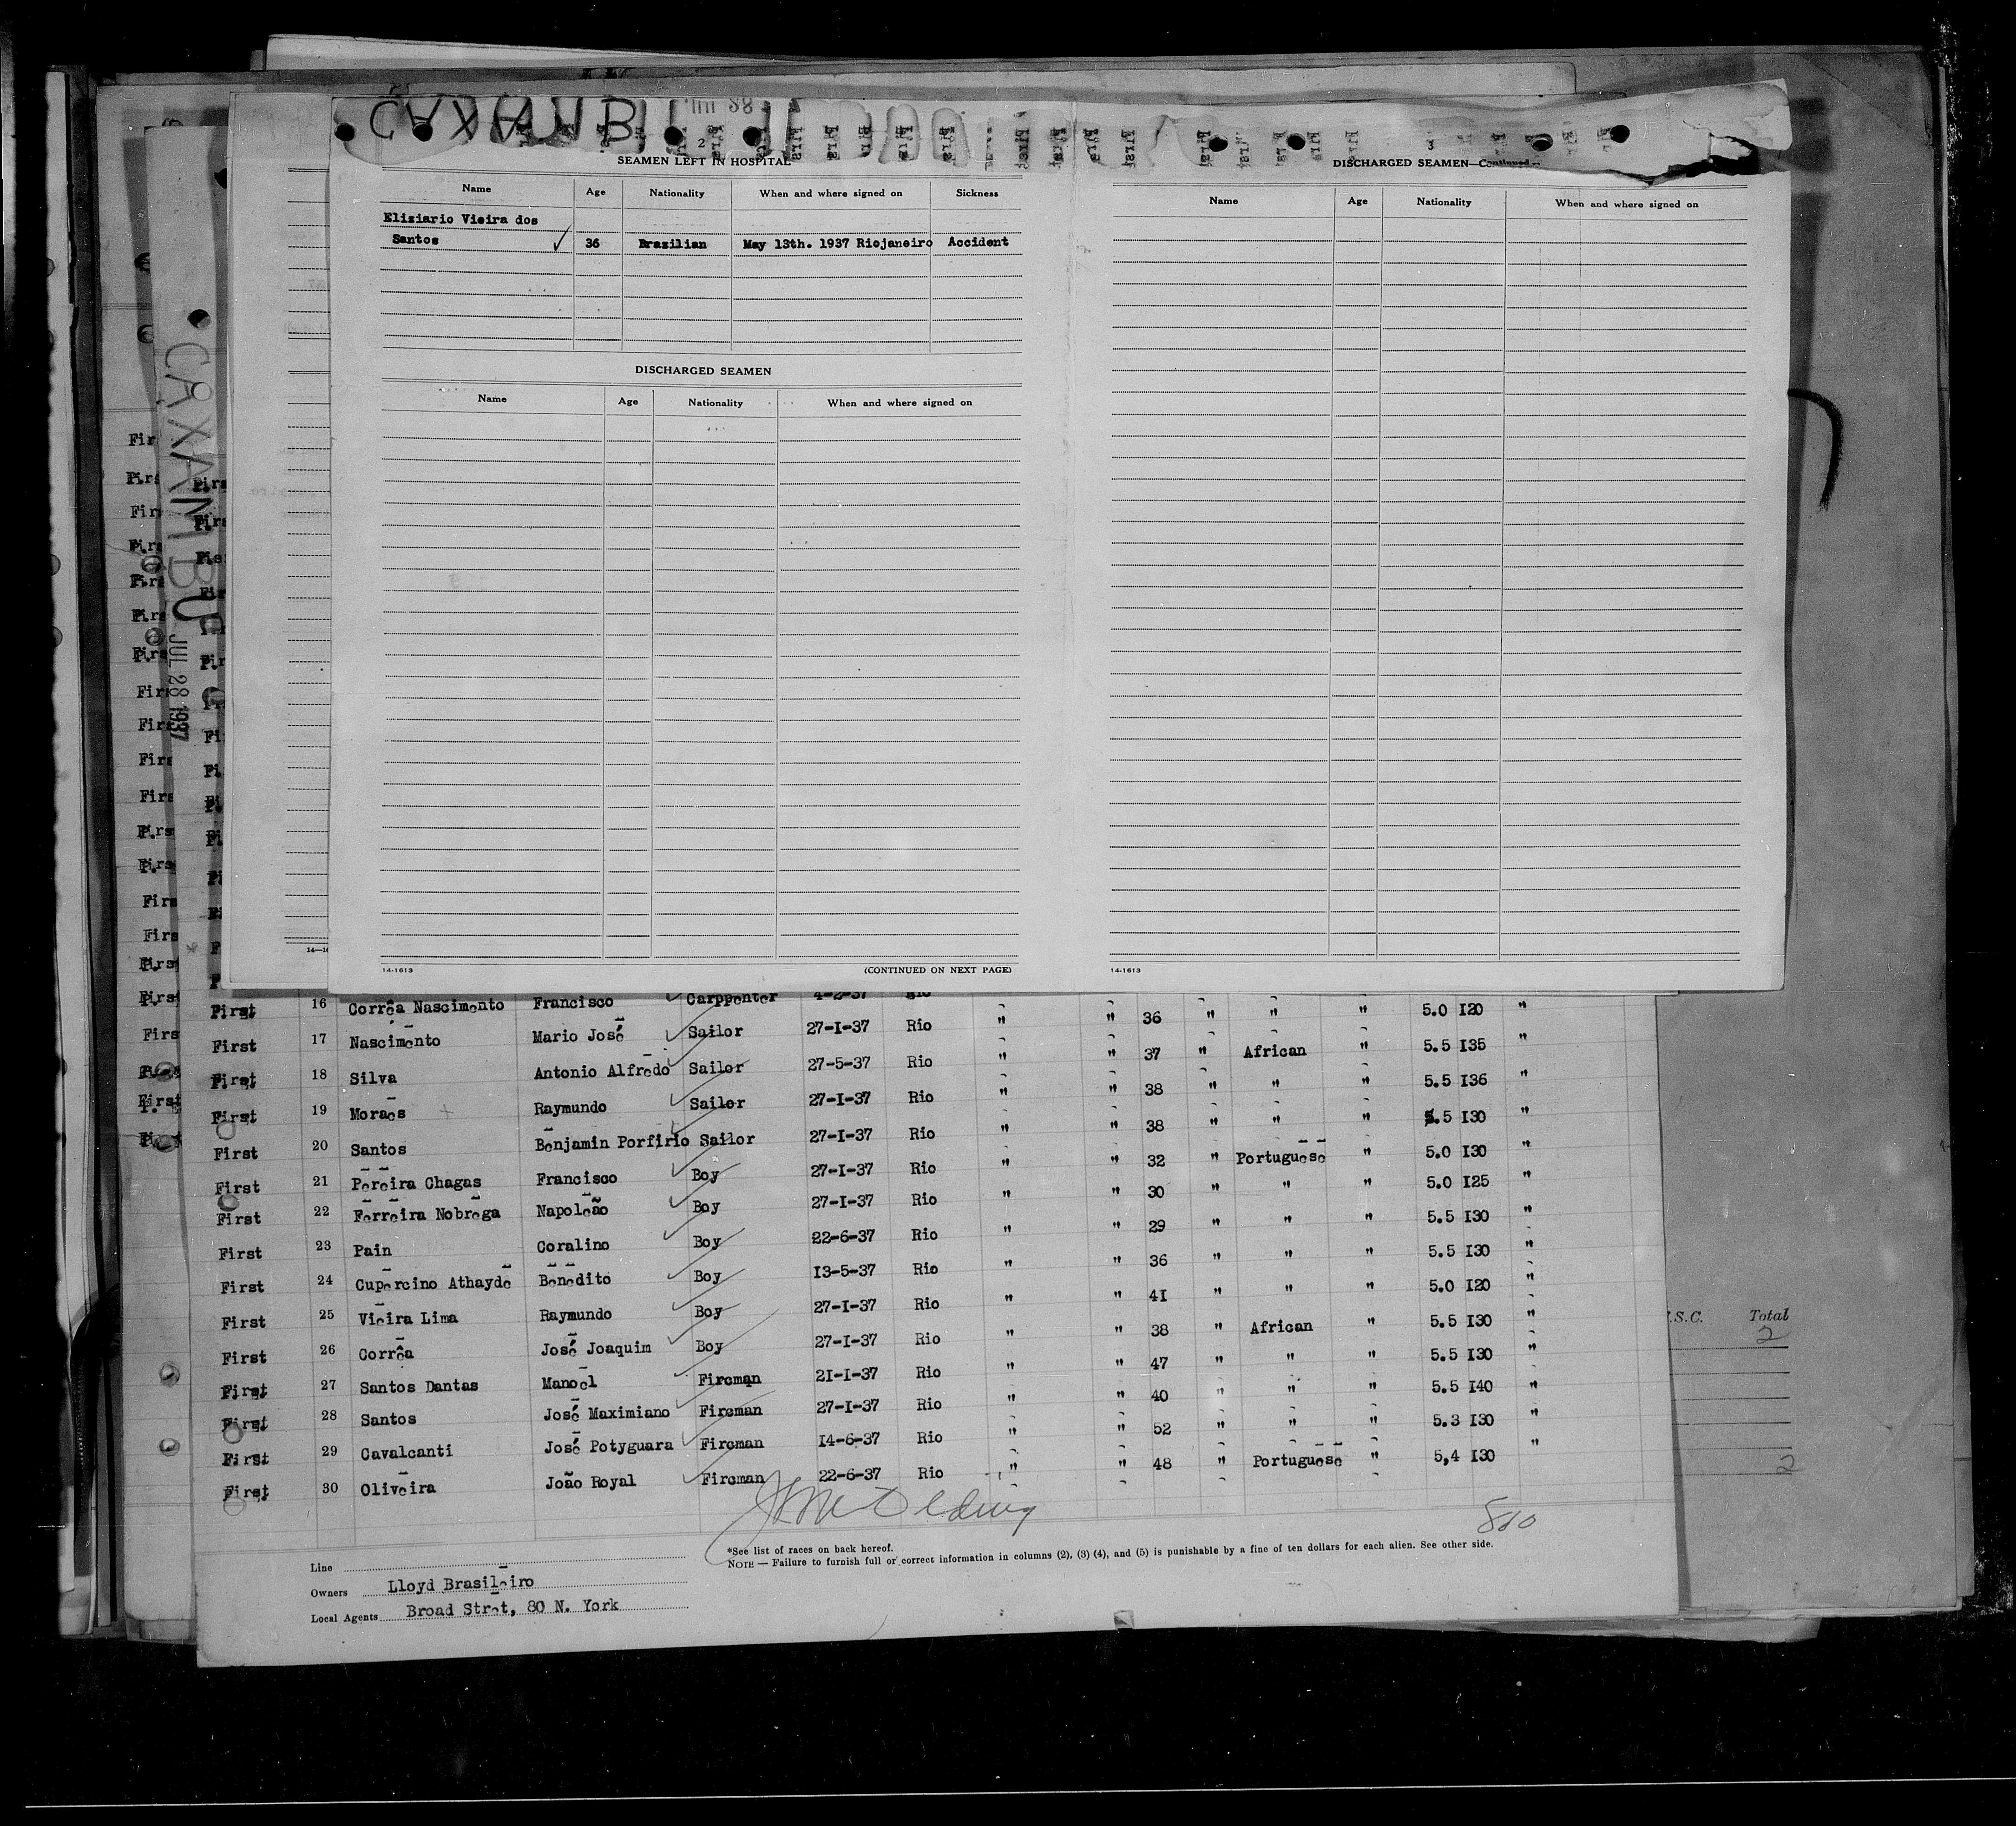 CAXAMBU
JUL 28
2
SEAMEN LEFT IN HOSPITAL
Name Age Nationality When and where signed on Sickness
Eliziario Vieira dos
Santos ✓ 36 Brazilian May 13th. 1937 Riojaneiro Accident
DISCHARGED SEAMEN
Name Age Nationality When and where signed on
14-1613 (CONTINUED ON NEXT PAGE)
3
DISCHARGED SEAMEN—Continued
Name Age Nationality When and where signed on
14-1613
CAXAMBU JUL 28 1937
First 16 Corrêa Nascimento Francisco Carppenter 4-2-37 Rio " " 36 " " " 5.0 I20 "
First 17 Nascimento Mario José Sailor 27-I-37 Rio " " 37 " African " 5.5 I35 "
First 18 Silva Antonio Alfredo Sailor 27-5-37 Rio " " 38 " " " 5.5 I36 "
First 19 Moraes Raymundo Sailor 27-I-37 Rio " " 38 " " " 5.5 I30 "
First 20 Santos Benjamin Porfirio Sailor 27-I-37 Rio " " 32 " Portuguese " 5.0 I30 "
First 21 Pereira Chagas Francisco Boy 27-I-37 Rio " " 30 " " " 5.0 I25 "
First 22 Ferreira Nobrega Napoleão Boy 27-I-37 Rio " " 29 " " " 5.5 I30 "
First 23 Pain Coralino Boy 22-6-37 Rio " " 36 " " " 5.5 I30 "
First 24 Cupercino Athayde Benedito Boy I3-5-37 Rio " " 4I " " " 5.0 I20 "
First 25 Vieira Lima Raymundo Boy 27-I-37 Rio " " 38 " African " 5.5 I30 "
First 26 Corrêa José Joaquim Boy 27-I-37 Rio " " 47 " " " 5.5 I30 "
First 27 Santos Dantas Manoel Fireman 2I-I-37 Rio " " 40 " " " 5.5 I40 "
First 28 Santos José Maximiano Fireman 27-I-37 Rio " " 52 " " " 5.3 I30 "
First 29 Cavalcanti José Potyguara Fireman I4-6-37 Rio " " 48 " Portuguese " 5,4 I30 "
First 30 Oliveira João Royal Fireman 22-6-37 Rio "
*See list of races on back hereof.
NOTE — Failure to furnish full or correct information in columns (2), (3) (4), and (5) is punishable by a fine of ten dollars for each alien. See other side.
Line
Owners Lloyd Brasileiro
Local Agents Broad Stret, 80 N. York
.S.C. Total
2
2